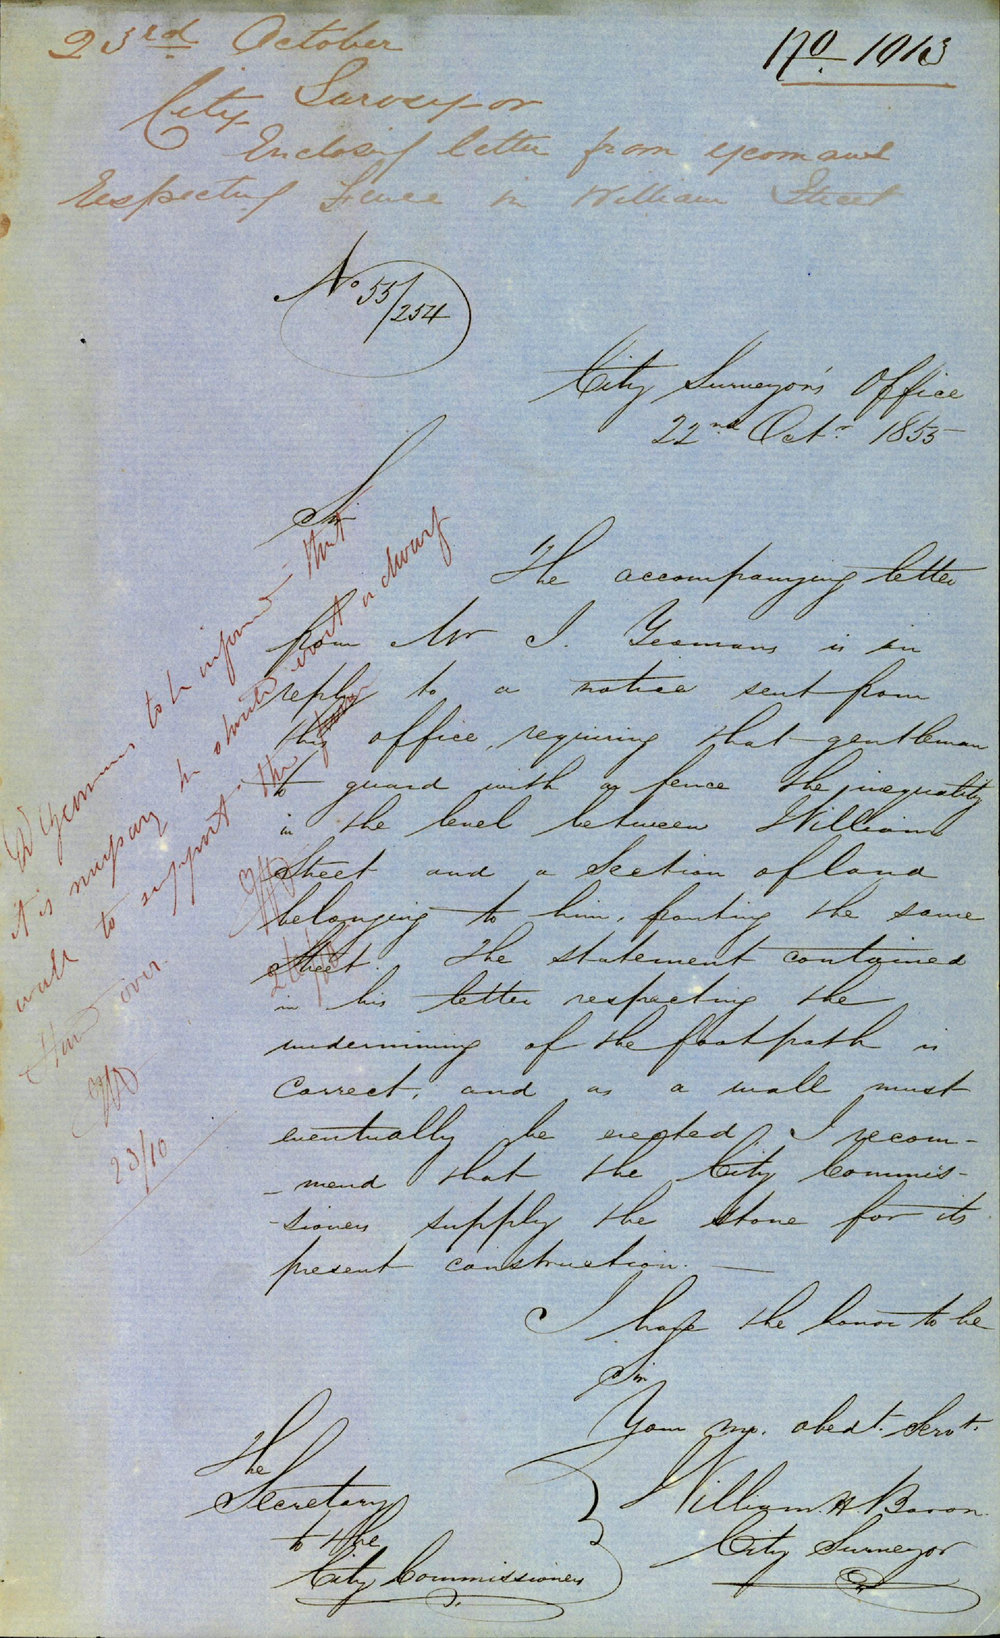 23rd October
No. 1013
City Surveyor
Enclosing letter from Yeomans
Respecting Fence in William Street
No. 55/254
City Surveyor's Office
22nd Octr. 1855
Sir
The accompanying letter
from Mr J. Yeomans is in
reply to a notice sent from
this office, requiring that gentleman
to guard with a fence the inequality
in the level between William
Street and a Section of land
belonging to him, fronting the same
Street. The statement contained
in his letter respecting the
undermining of the footpath is
correct, and as a wall must
eventually be erected, I recom-
-mend that the City Commis-
-sioners supply the stone for its
present construction. —
I have the honor to be
Sir
Your mo. obedt. Servt.
William H. Baron
City Surveyor
The
Secretary
to the
City Commissioners
Yeomans to be informed that
it is necessary he should erect a dwarf
wall to support the
over.
23/10